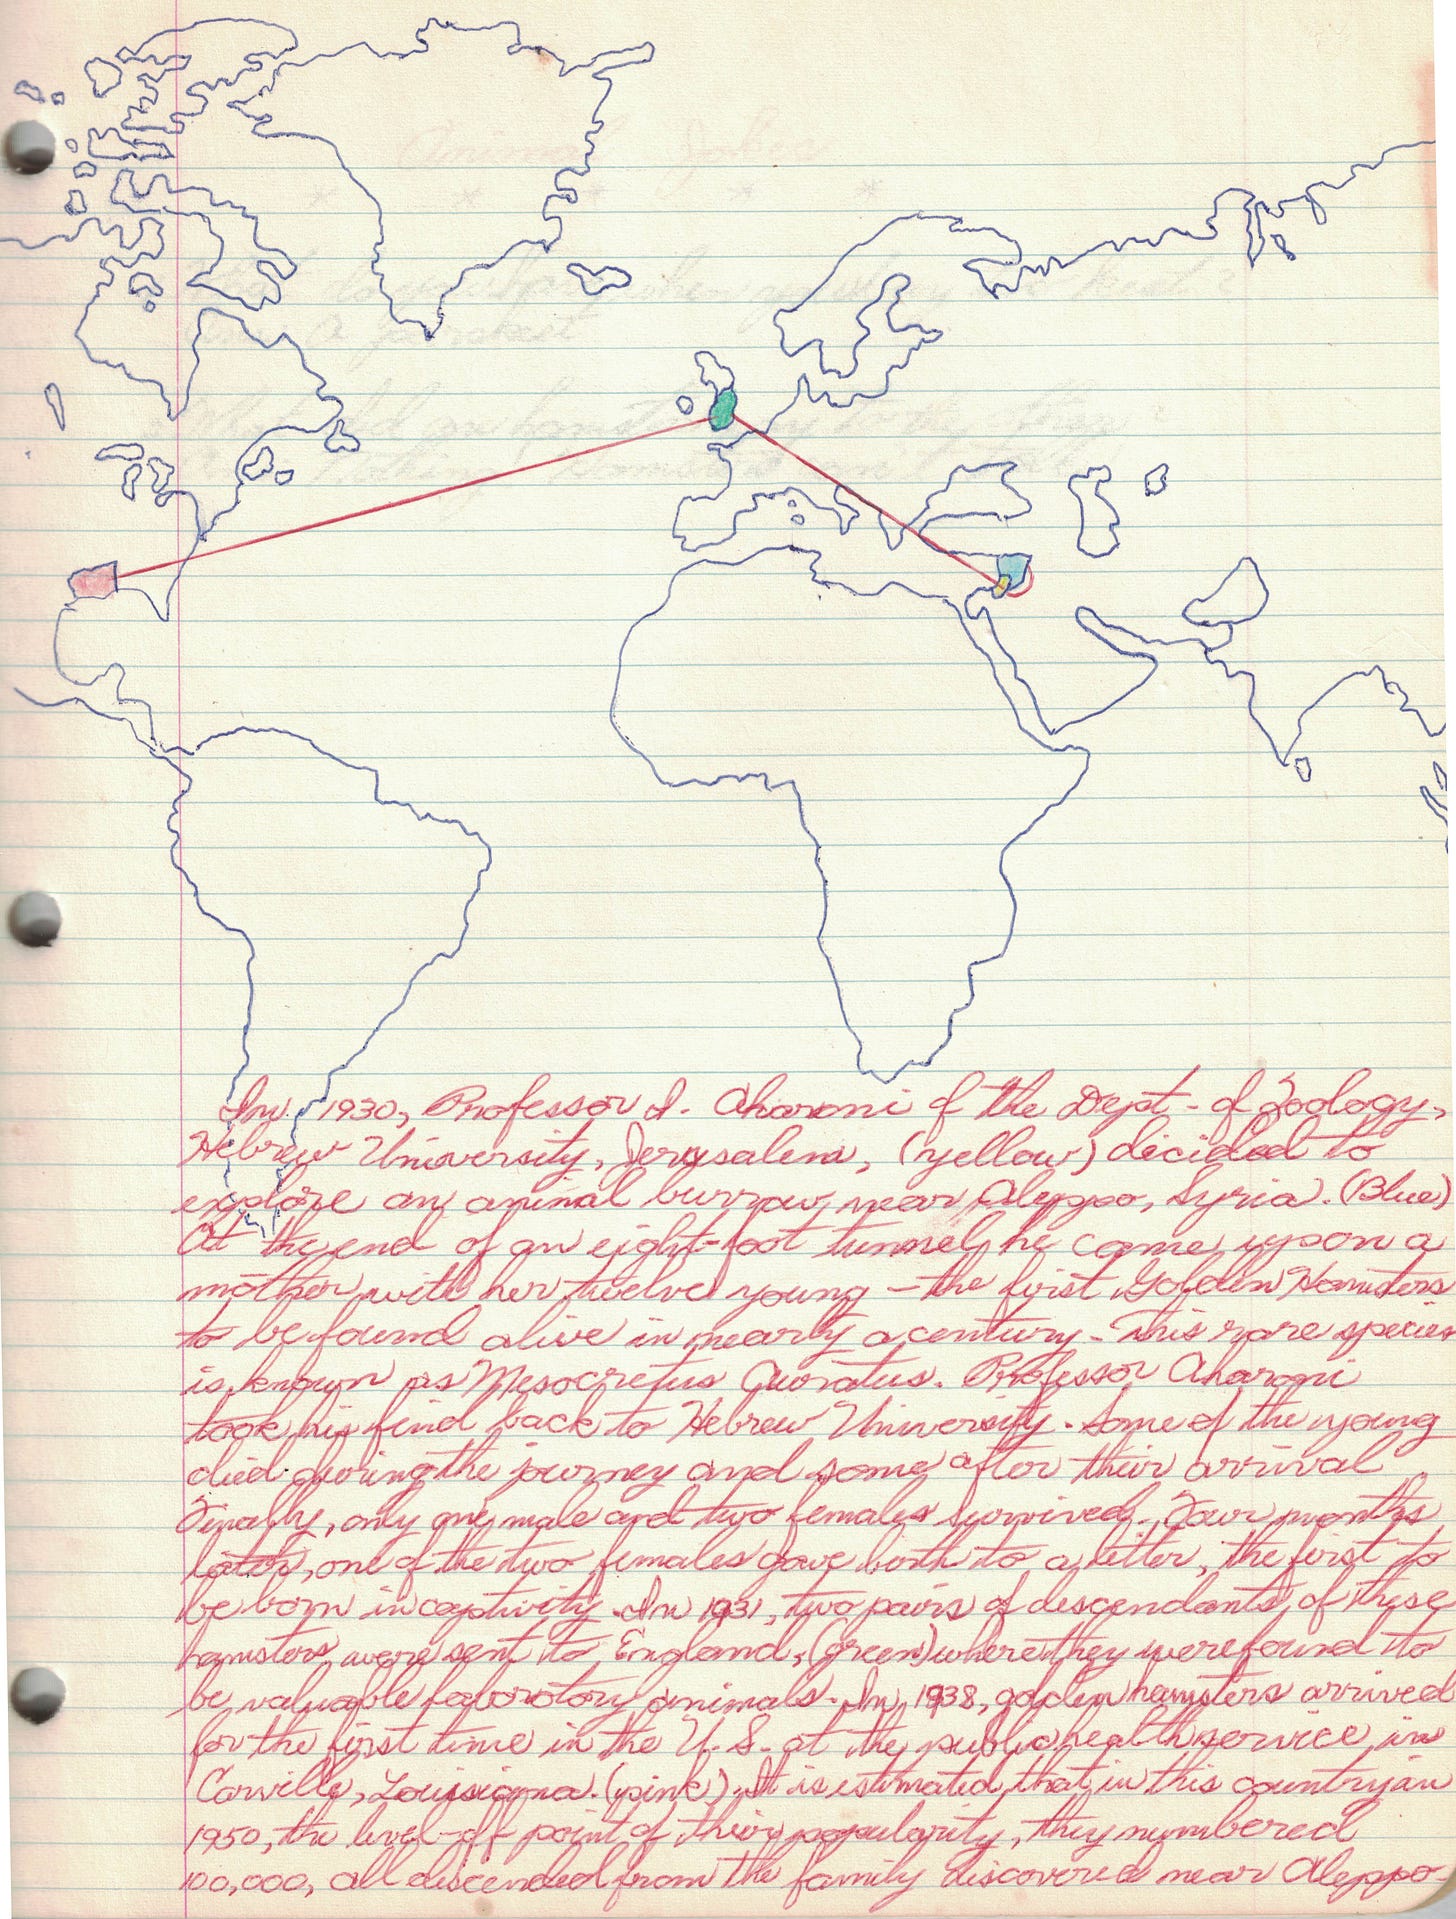 Animal Jokes
* * * * *
when you
A parakeet
In 1930, Professor I. Aharoni of the Dept. of Zoology,
Hebrew University, Jerusalem, (yellow) decided to
explore an animal burrow near Aleppo, Syria. (Blue)
At the end of an eight-foot tunnel he came upon a
mother with her twelve young – the first Golden Hamsters
to be found alive in nearly a century. This rare species
is known as Mesocretus Auratus. Professor Aharoni
took his find back to Hebrew University. Some of the young
died during the journey and some after their arrival
Finally, only one male and two females survived. Four months
later, one of the two females gave birth to a litter, the first to
be born in captivity. In 1931, two pairs of descendants of these
hamsters were sent to England, (green) where they were found to
be valuable laboratory animals. In 1938, golden hamsters arrived
for the first time in the U.S. at the public health service in
Carville, Louisiana. (pink). It is estimated that in this country in
1950, the level-off point of their popularity, they numbered
100,000, all descended from the family discovered near Aleppo.